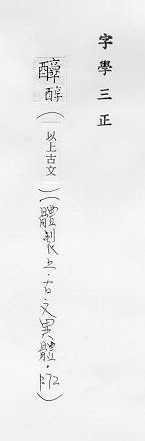 字學三正
醇(以上古文)(體製上·古文異體·72)